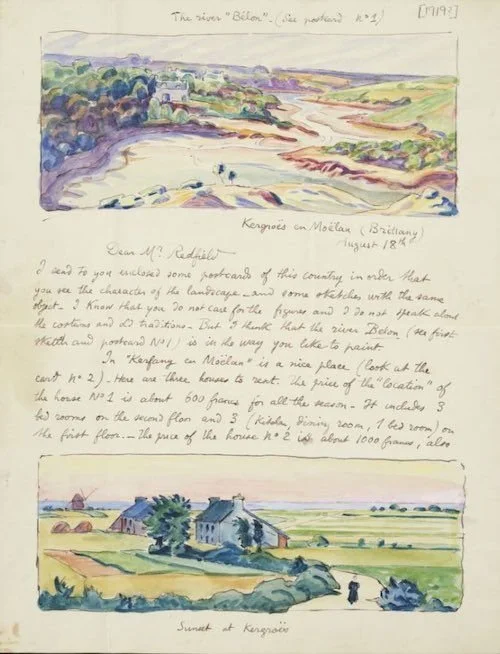 The river "Bélon" - (See postcard n°1)
[1919?]
Kergroës en Moëlan (Brittany)
August 18th
Dear Mr Redfield
I send to you enclosed some postcards of this country in order that
you see the character of the landscape - and some sketches with the same
object - I know that you do not care for the figures and I do not speak about
the costums and old traditions - But I think that the river Belon (see first
sketch and postcard N°1) is in the way you like to paint
In "Kerfany en Moëlan" is a nice place (look at the
card n° 2) - Here are three houses to rent. The price of the "location" of
the house N°1 is about 600 francs for all the season - It includes 3
bed rooms on the second floor and 3 (Kitchen, dining room, 1 bed room) on
the first floor. - The price of the house n° 2 is about 1000 francs, also
Sunset at Kergroës